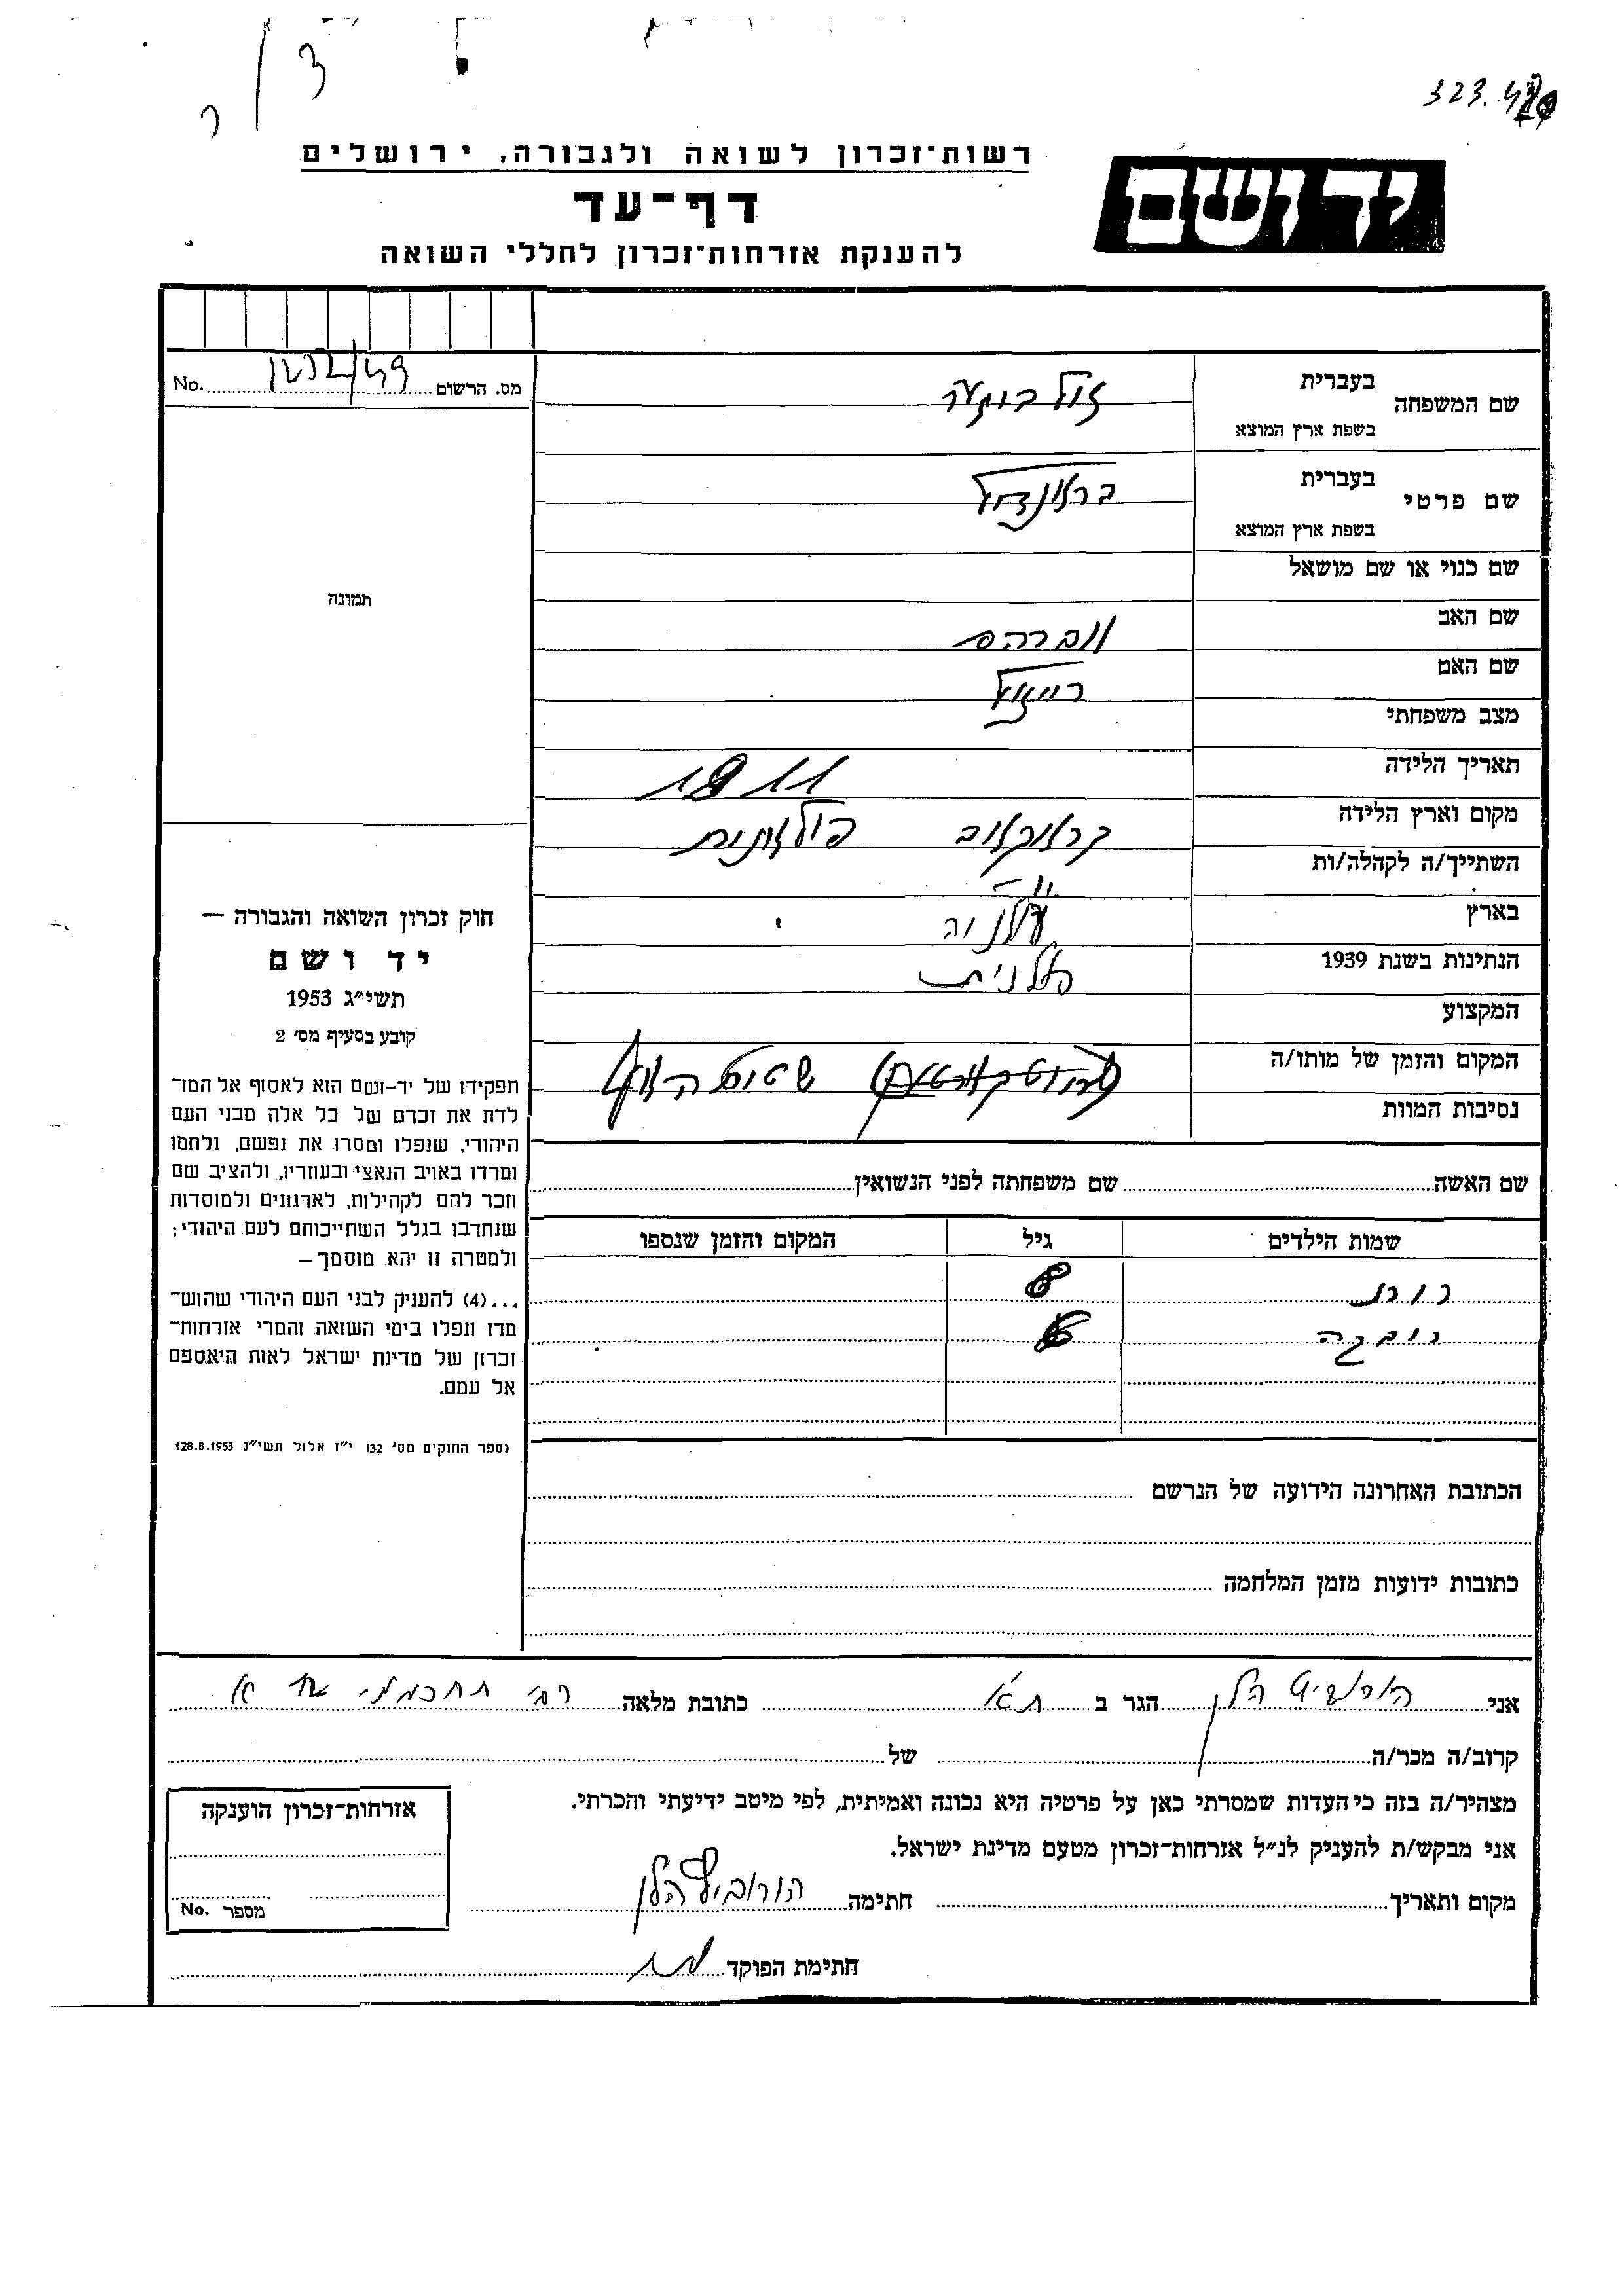 רשות־זכרון לשואה ולגבורה, ירושלים
יד ושם
דף־עד
להענקת אזרחות־זכרון לחללי השואה
מס. הרשום No.
שם המשפחה בעברית
בשפת ארץ המוצא
שם פרטי בעברית בראנדל
בשפת ארץ המוצא
שם כנוי או שם מושאל
שם האב אברהם
שם האם רייזל
מצב משפחתי
תאריך הלידה 1911
מקום וארץ הלידה קראקאוב
השתייך/ה לקהלה/ות -"-
בארץ
הנתינות בשנת 1939 פולנית
המקצוע
המקום והזמן של מותו/ה
נסיבות המוות
שם האשה שם משפחתה לפני הנשואין
שמות הילדים גיל המקום והזמן שנספו
רות 8
רבקה 6
הכתובת האחרונה הידועה של הנרשם
כתובות ידועות מזמן המלחמה
תמונה
חוק זכרון השואה והגבורה —
יד ושם
תשי״ג 1953
קובע בסעיף מס׳ 2
תפקידו של יד-ושם הוא לאסוף אל המו־
לדת את זכרם של כל אלה מבני העם
היהודי, שנפלו ומסרו את נפשם, נלחמו
ומרדו באויב הנאצי ובעוזריו, ולהציב שם
וזכר להם לקהילות, לארגונים ולמוסדות
שנחרבו בגלל השתייכותם לעם היהודי;
ולמטרה זו יהא מוסמך—
...(4) להעניק לבני העם היהודי שהוש־
מדו ונפלו בימי השואה והמרי אזרחות־
זכרון של מדינת ישראל לאות היאספם
אל עמם.
(ספר החוקים מס׳ 132 י״ז אלול תשי״ג 28.8.1953)
אני הורוביץ הלן הגר ב ת"א כתובת מלאה רח' תחכמוני
קרוב/ה מכר/ה של
מצהיר/ה בזה כי העדות שמסרתי כאן על פרטיה היא נכונה ואמיתית, לפי מיטב ידיעתי והכרתי.
אני מבקש/ת להעניק לנ״ל אזרחות־זכרון מטעם מדינת ישראל.
מקום ותאריך חתימה הורוביץ הלן
חתימת הפוקד
אזרחות־זכרון הוענקה
מספר No.